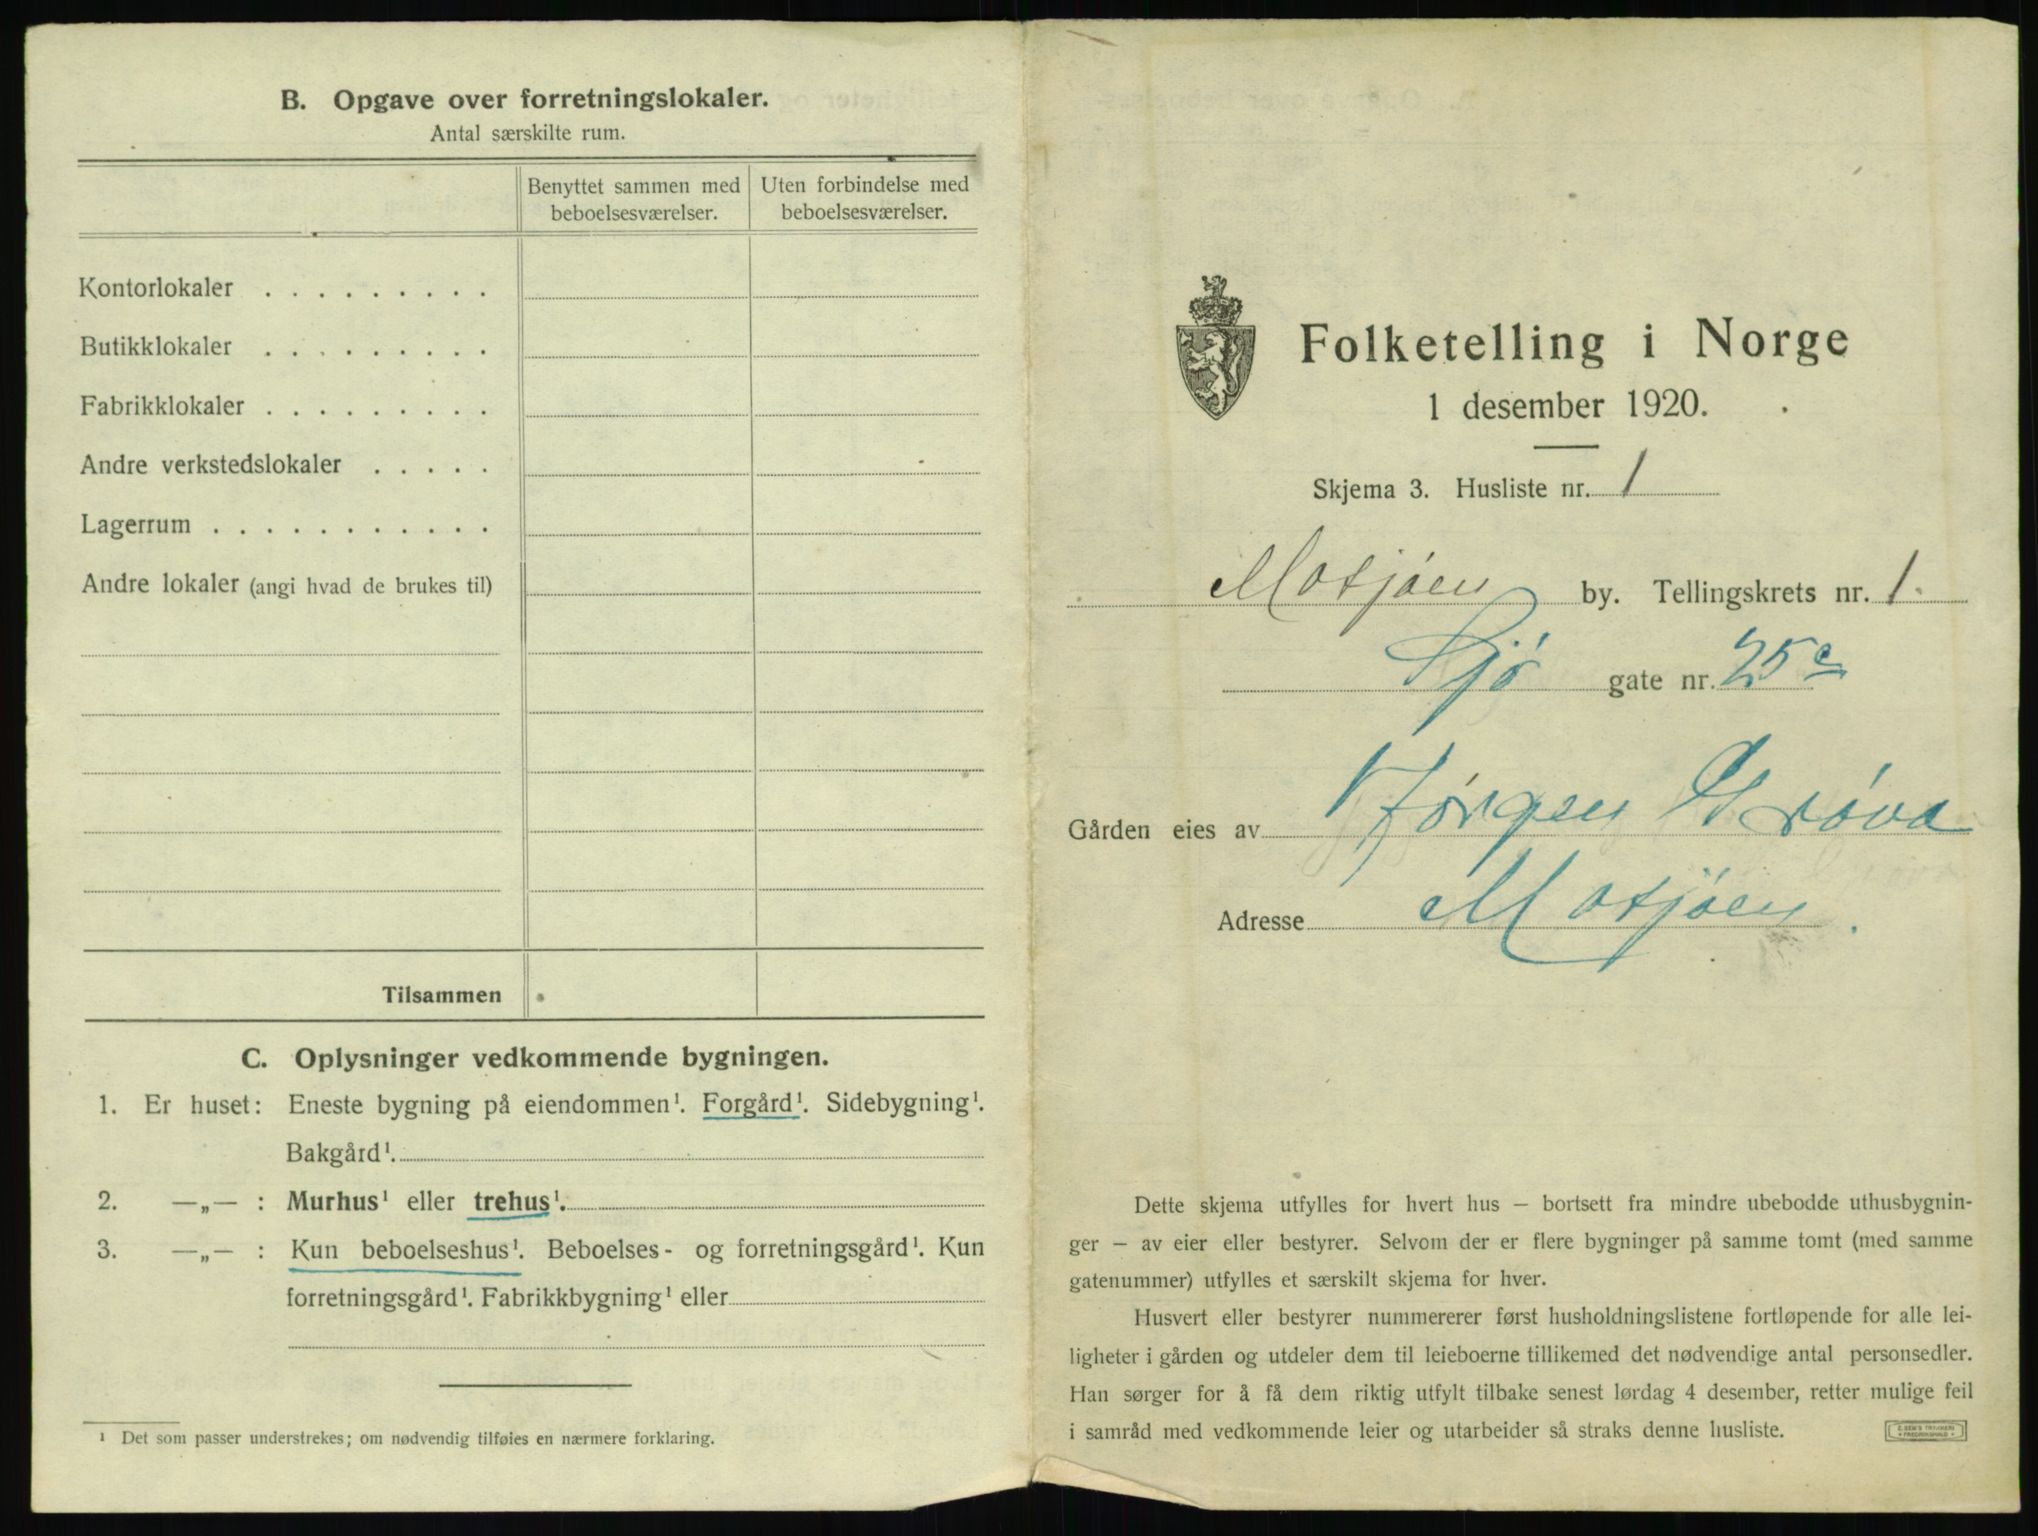 B. Opgave over forretningslokaler.
Antal særskilte rum.
Benyttet sammen med beboelsesværelser.
Uten forbindelse med beboelsesværelser.
Kontorlokaler . . . . . . . . .
Butikklokaler . . . . . . . . .
Fabrikklokaler . . . . . . . . .
Andre verkstedslokaler . . . . .
Lagerrum . . . . . . . . . . .
Andre lokaler (angi hvad de brukes til)
Tilsammen
C. Oplysninger vedkommende bygningen.
1. Er huset: Eneste bygning på eiendommen¹. Forgård¹. Sidebygning¹.
Bakgård¹.
2. —„— : Murhus¹ eller trehus¹.
3. —„— : Kun beboelseshus¹. Beboelses- og forretningsgård¹. Kun
forretningsgård¹. Fabrikkbygning¹ eller
¹ Det som passer understrekes; om nødvendig tilføies en nærmere forklaring.
Folketelling i Norge
1 desember 1920.
Skjema 3. Husliste nr. 1
Mosjøen by. Tellingskrets nr. 1.
Sjø gate nr. 25c
Gården eies av Jørgen Grøva
Adresse Mosjøen.
Dette skjema utfylles for hvert hus – bortsett fra mindre ubebodde uthusbygnin-
ger – av eier eller bestyrer. Selvom der er flere bygninger på samme tomt (med samme
gatenummer) utfylles et særskilt skjema for hver.
Husvert eller bestyrer nummererer først husholdningslistene fortløpende for alle lei-
ligheter i gården og utdeler dem til leieboerne tillikemed det nødvendige antal personsedler.
Han sørger for å få dem riktig utfylt tilbake senest lørdag 4 desember, retter mulige feil
i samråd med vedkommende leier og utarbeider så straks denne husliste.